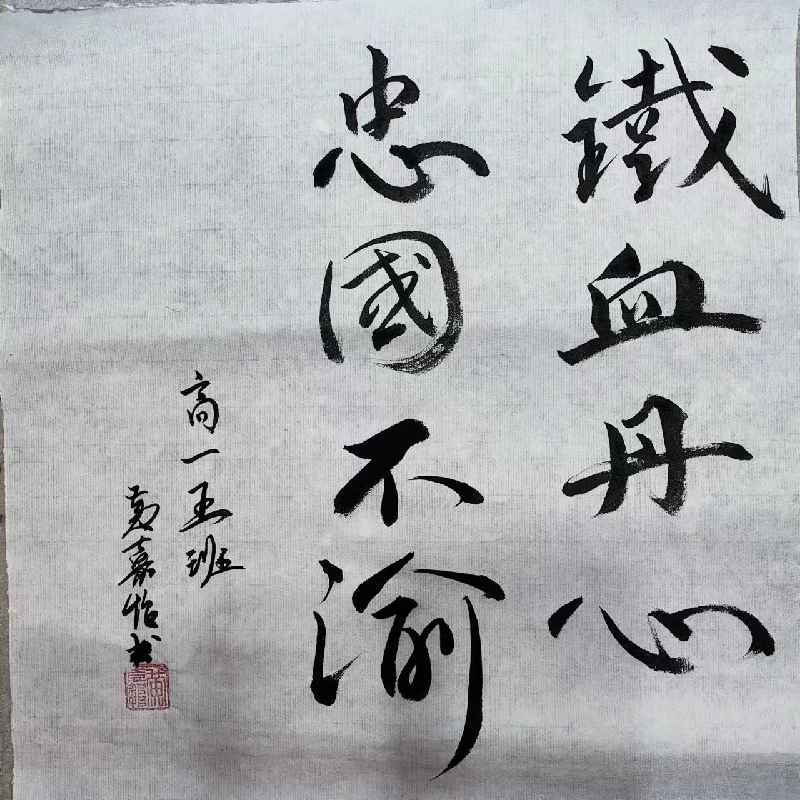 鐵血丹心
忠國不渝
高一五班
黄嘉怡书